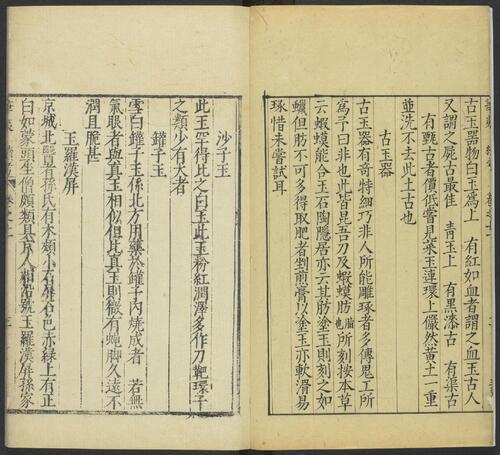 古玉器物白玉爲上　有紅如血者謂之血玉古人
又謂之屍古最佳　青玉上　有黑漆古　有渠古
有甄古者價低嘗見菜玉連環上儼然黄土一重
並洗不去此土古也
古玉器
古玉器有奇特細巧非人所能雕琢者多傳鬼工所
爲予曰非也此皆昆吾刀及蝦蟆肪脂也所刻按本草
云蝦蟆能合玉石陶隱居亦云其肪塗玉則刻之如
蠟但肪不可多得取肥者剉煎膏以塗玉亦軟滑易
琢惜未嘗試耳
沙子玉
此玉罕得比之白玉此玉粉紅潤澤多作刀靶環子
之類少有大者
罐子玉
雪白罐子玉係北方用藥於罐子内燒成者　若無
氣眼者與真玉相似但比真玉則微有蠅脚久遠不
潤且脆甚
玉羅漢屏
京城北有孫氏有木類小石屏石色赤緑上有正
白如蒙頭坐僧頗類真人相沿號玉羅漢屏孫家